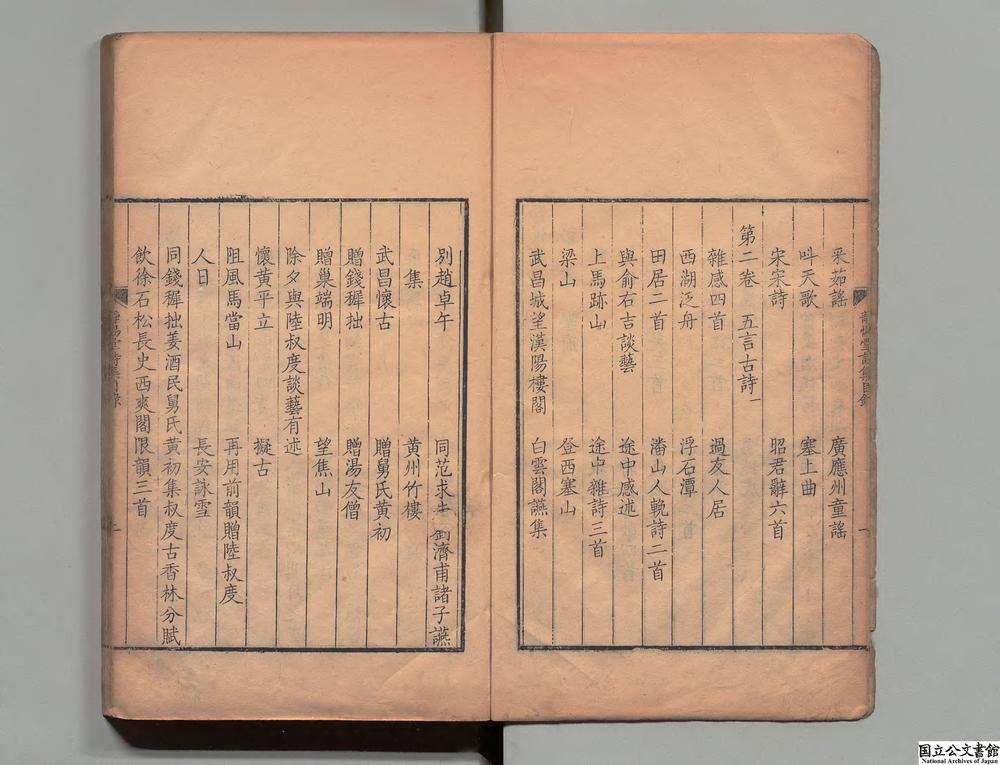 采茹謠 廣應州童謠
呌天歌 塞上曲
宋宋詩 昭君辭六首
第二卷 五言古詩一
雜感四首 過友人居
西湖泛舟 浮石潭
田居二首 潘山人輓詩二首
與俞右吉談藝 途中感述
上馬跡山 途中雜詩三首
梁山 登西塞山
武昌城望漢陽樓閣 白雲閣讌集
別趙卓午 同范求 劉濟甫諸子讌
集 黄州竹樓
武昌懷古 贈舅氏黄初
贈錢穉拙 贈湯友僧
贈巢端明 望焦山
除夕與陸叔度談藝有述
懷黄平立 擬古
阻風馬當山 再用前韻贈陸叔度
人日 長安詠雪
同錢穉拙姜酒民舅氏黄初集叔度古香林分賦
飲徐石松長史西爽閣限韻三首
国立公文書館
National Archives of Japan